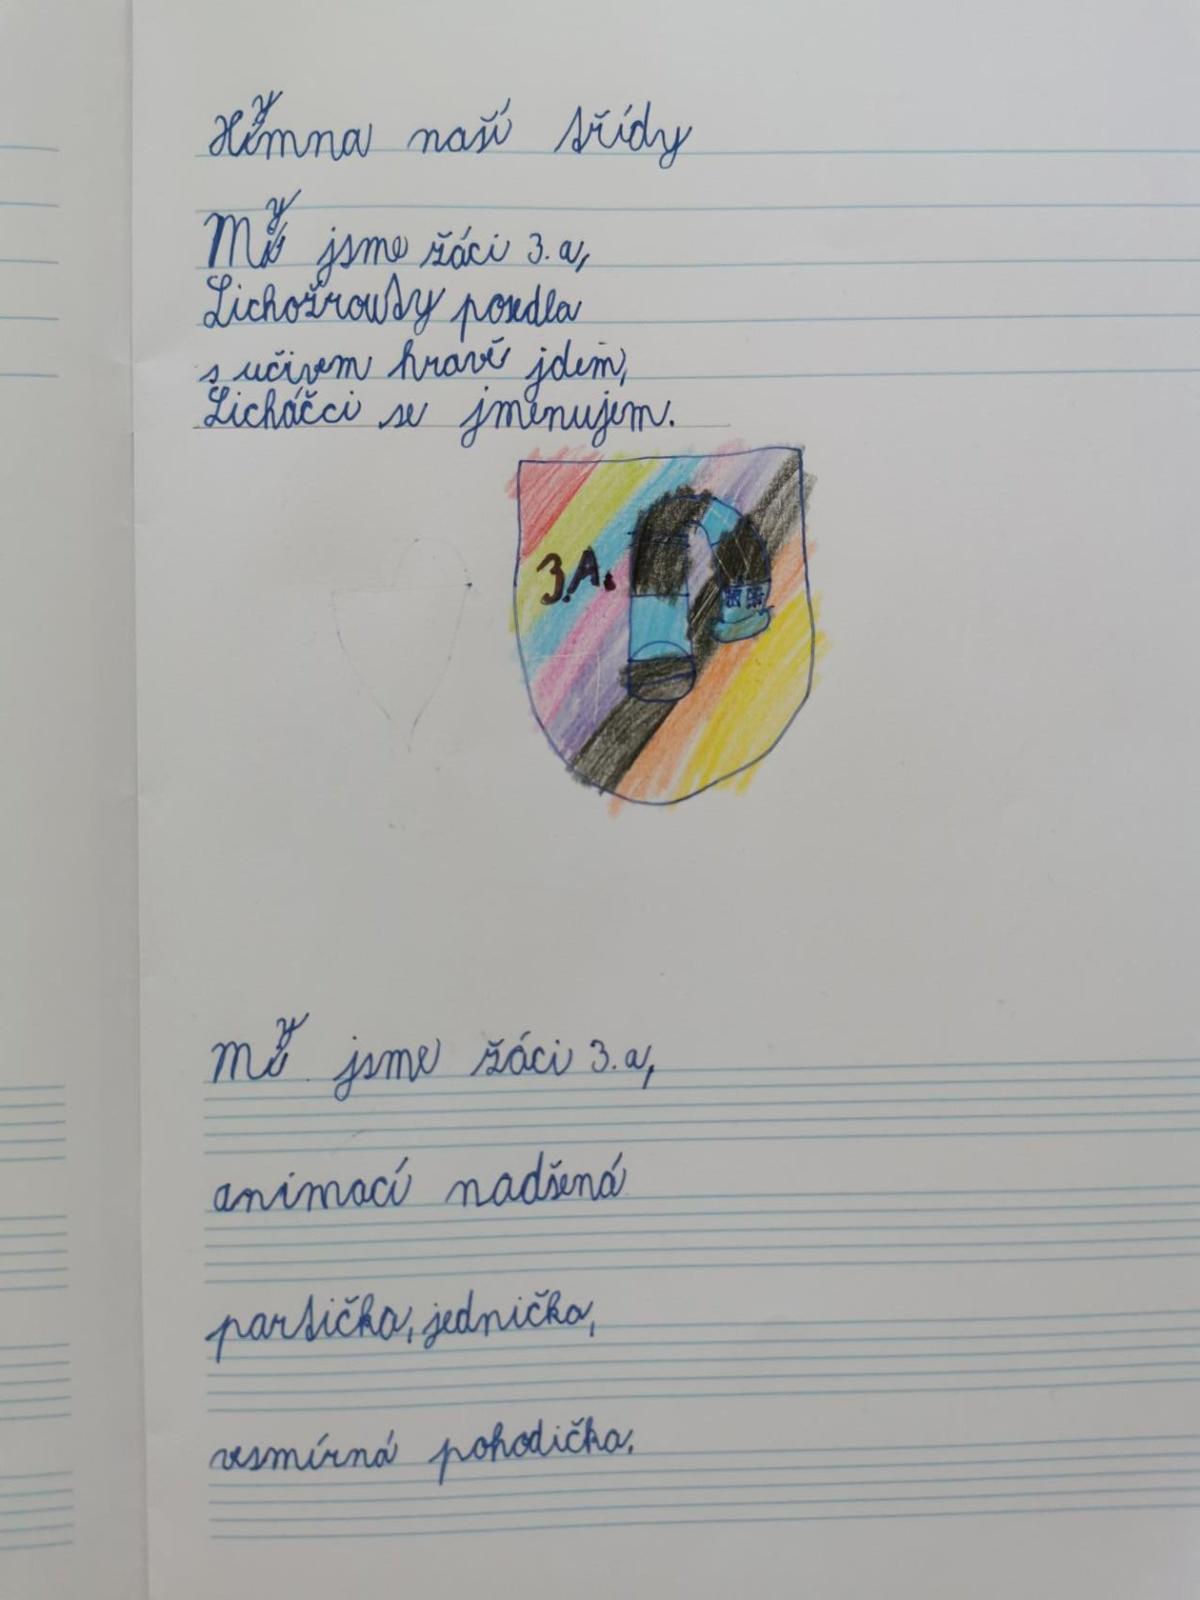 Hymna naší třídy
My jsme žáci 3. a,
Lichožrouty posedla
s učivem hravě jdem,
Licháčci se jmenujem.
3.A.
My jsme žáci 3. a,
animací nadšená
partička, jednička,
vesmírná pohodička.